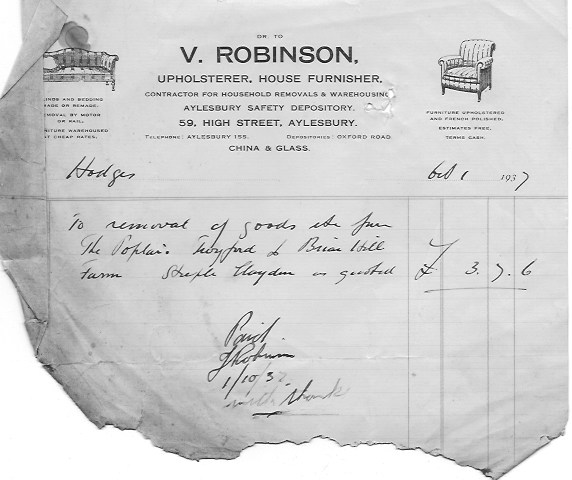 DR. TO
V. ROBINSON,
UPHOLSTERER, HOUSE FURNISHER,
CONTRACTOR FOR HOUSEHOLD REMOVALS & WAREHOUSING
AYLESBURY SAFETY DEPOSITORY.
59, HIGH STREET, AYLESBURY.
TELEPHONE: AYLESBURY 155. DEPOSITORIES: OXFORD ROAD.
CHINA & GLASS.
LINDS AND BEDDING
MADE OR REMADE.
REMOVAL BY MOTOR
OR RAIL.
NITURE WAREHOUSED
AT CHEAP RATES.
FURNITURE UPHOLSTERED
AND FRENCH POLISHED.
ESTIMATES FREE.
TERMS CASH.
Hodges Oct 1 1937
To removal of goods etc from
The Poplars Twyford to Briar Hill
Farm Steeple Claydon as quoted £ 3. 7. 6
Paid
1/10/37
with thanks